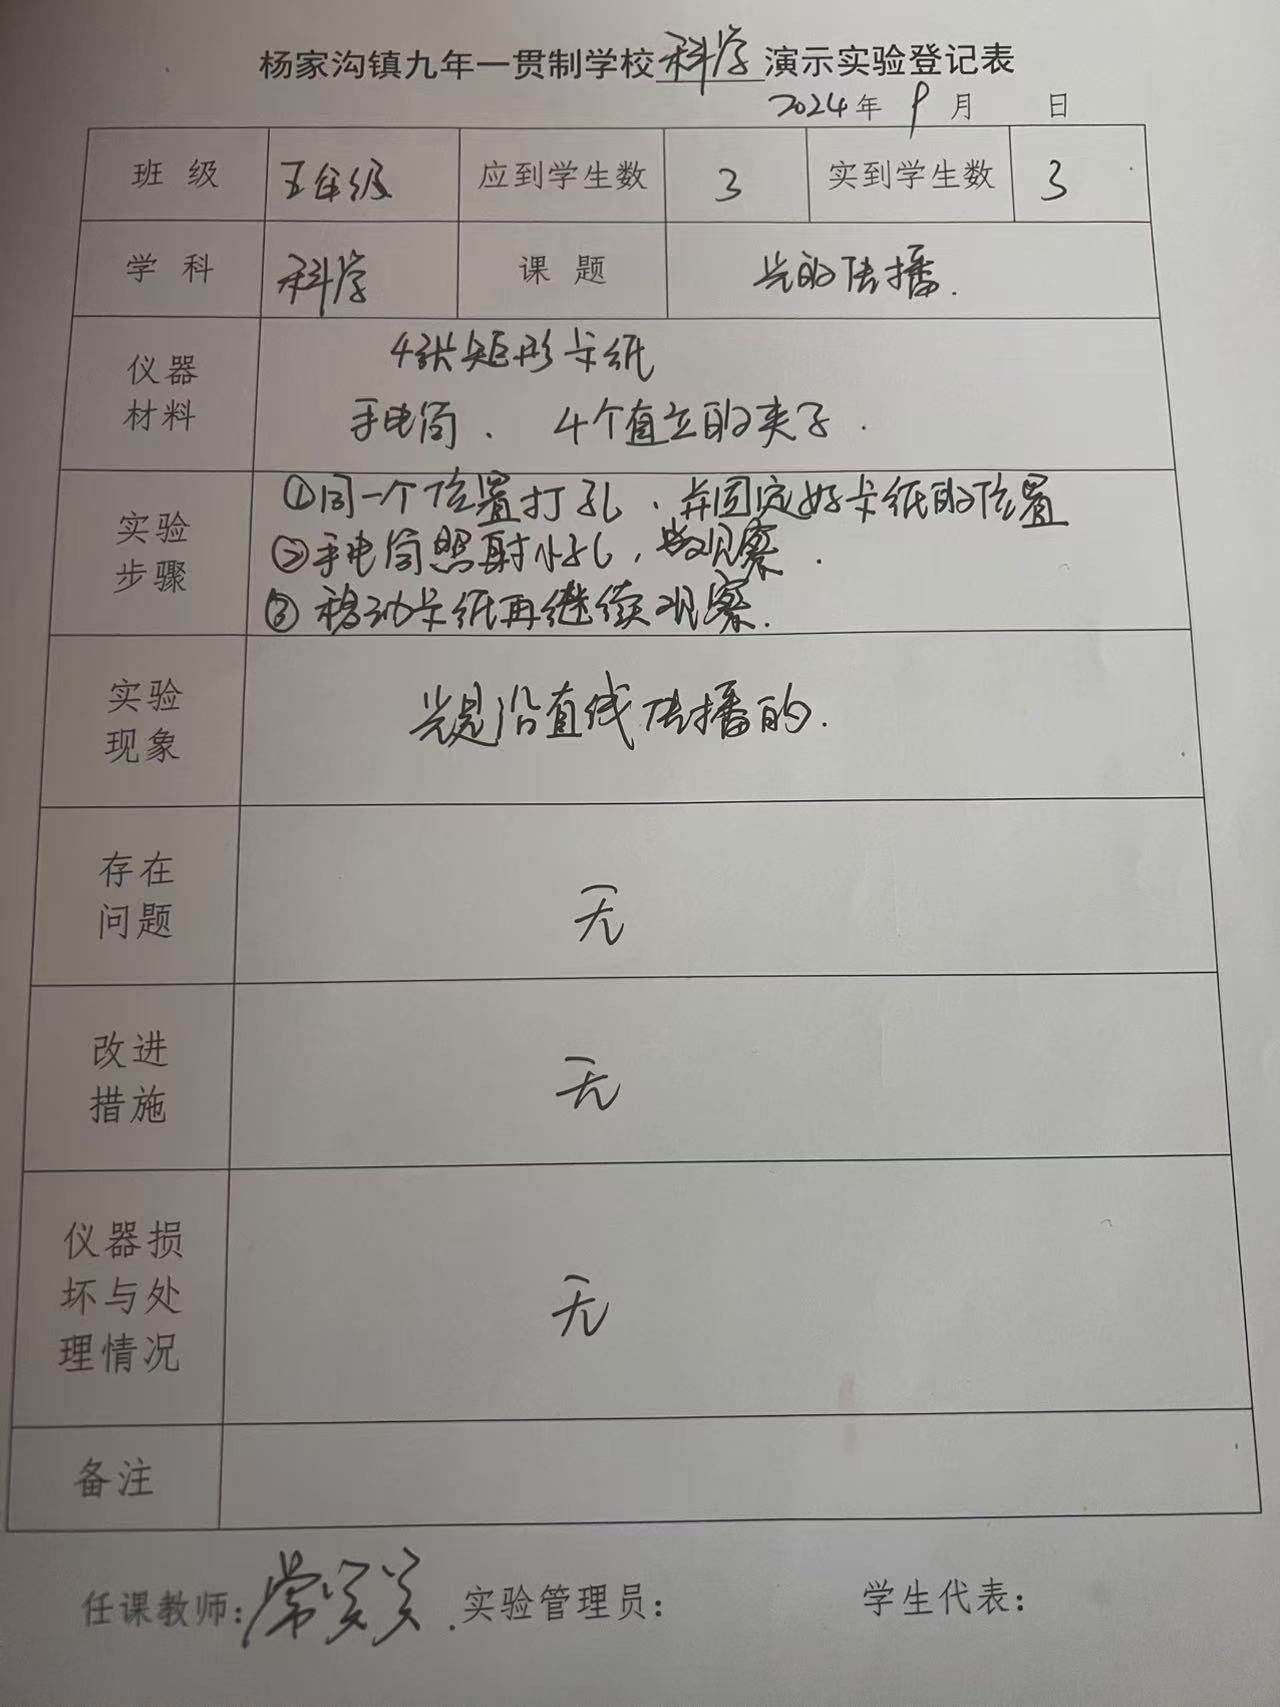 杨家沟镇九年一贯制学校科学演示实验登记表
2024年 9月 日
班 级 五年级 应到学生数 3 实到学生数 3
学 科 科学 课 题 光的传播.
仪器
材料
4张矩形卡纸
手电筒、 4个直立的夹子.
实验
步骤
①同一个位置打孔、并固定好卡纸的位置
②手电筒照射小孔, 观察.
③移动卡纸再继续观察.
实验
现象
光是沿直线传播的.
存在
问题
无
改进
措施
无
仪器损
坏与处
理情况
无
备注
任课教师: 常 实验管理员: 学生代表: